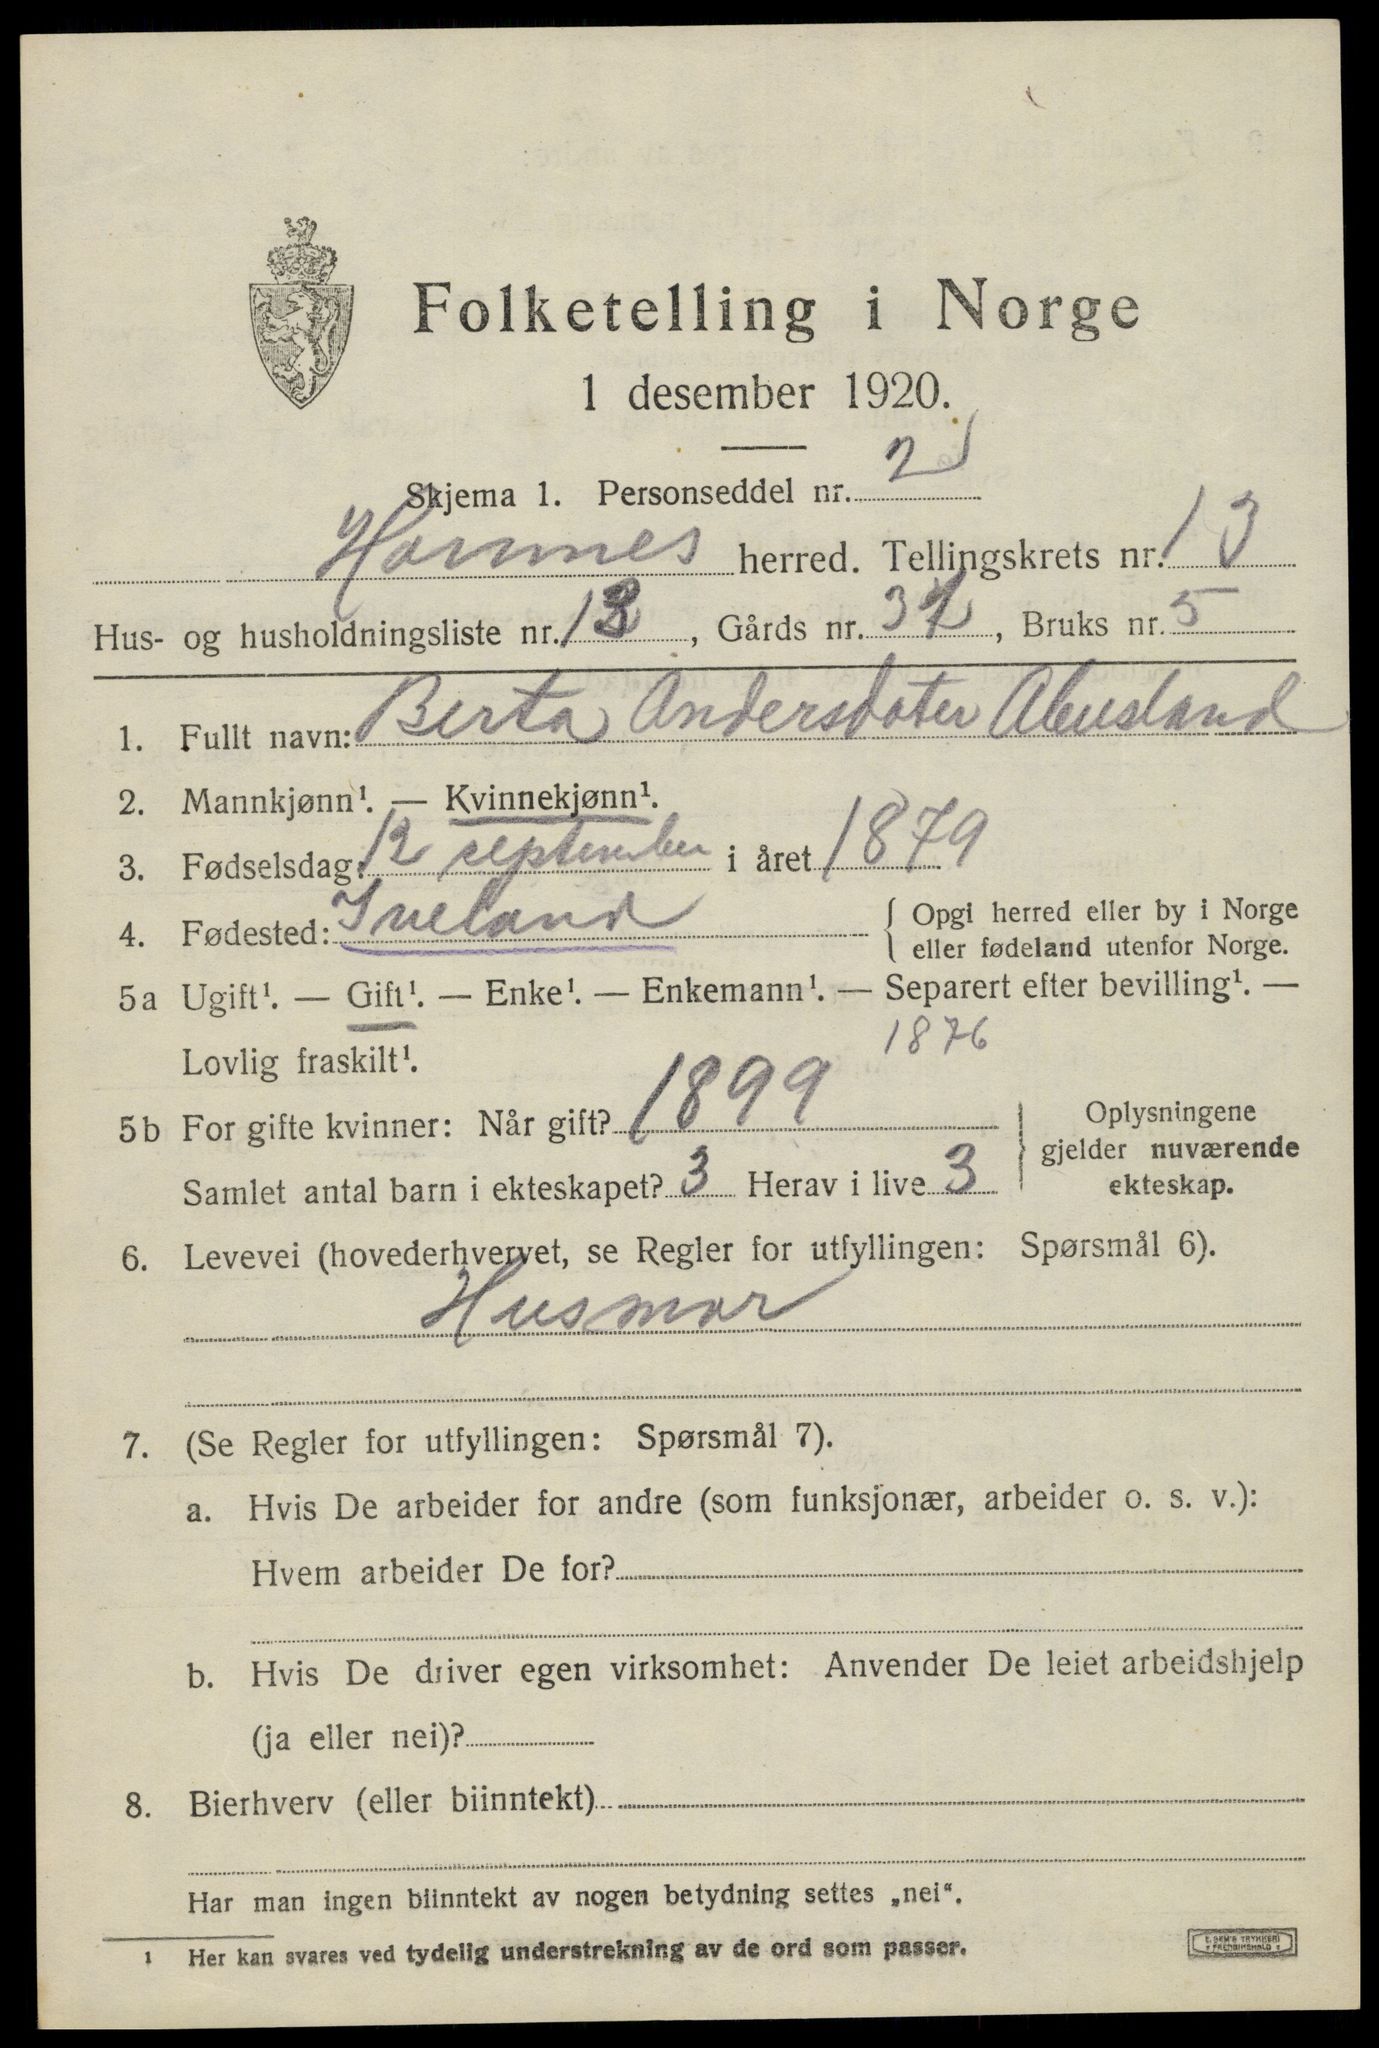 Folketelling i Norge
1 desember 1920.
Skjema 1. Personseddel nr. 2
Hornnes herred. Tellingskrets nr. 13
Hus- og husholdningsliste nr. 13, Gårds nr. 37, Bruks nr. 5
1. Fullt navn: Berta Andersdater Abusland
2. Mannkjønn¹. — Kvinnekjønn¹.
3. Fødselsdag: 12 september i året 1879
4. Fødested: Iveland { Opgi herred eller by i Norge
eller fødeland utenfor Norge.
5a Ugift¹. — Gift¹. — Enke¹. — Enkemann¹. — Separert efter bevilling¹. —
Lovlig fraskilt¹. 1876
5b For gifte kvinner: Når gift? 1899
Samlet antal barn i ekteskapet? 3 Herav i live 3
} Oplysningene
gjelder nuværende
ekteskap.
6. Levevei (hovederhvervet, se Regler for utfyllingen: Spørsmål 6).
Husmor
7. (Se Regler for utfyllingen: Spørsmål 7).
a. Hvis De arbeider for andre (som funksjonær, arbeider o. s. v.):
Hvem arbeider De for?
b. Hvis De driver egen virksomhet: Anvender De leiet arbeidshjelp
(ja eller nei)?
8. Bierhverv (eller biinntekt)
Har man ingen biinntekt av nogen betydning settes „nei“.
¹ Her kan svares ved tydelig understrekning av de ord som passer.